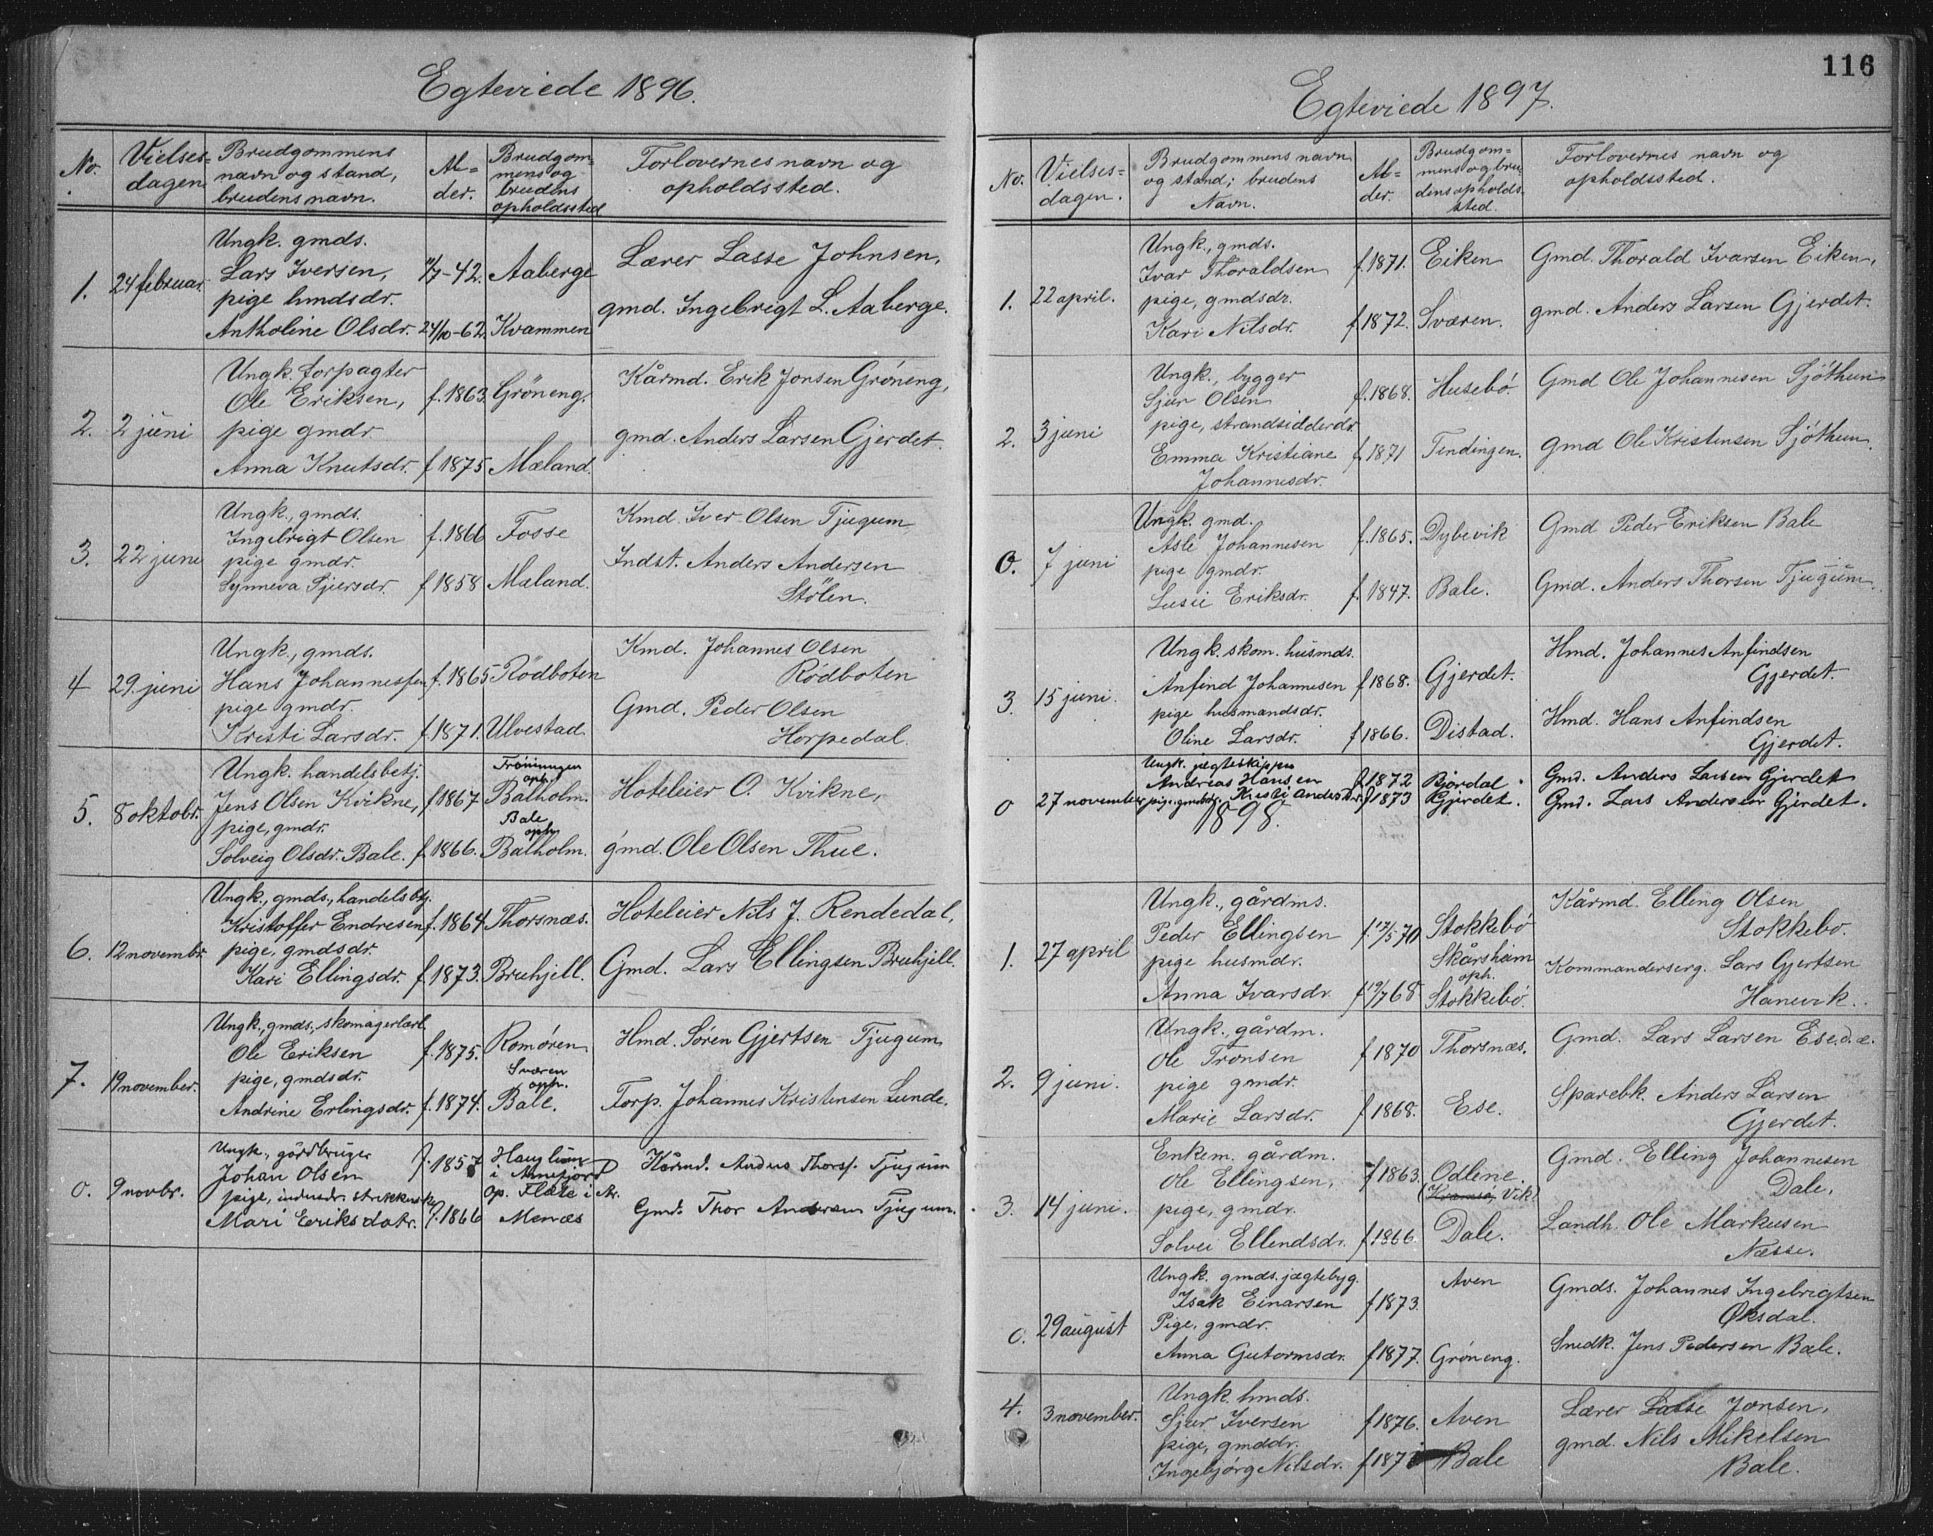 116
Egteviede 1896.
No.
Vielses=
dagen.
Brudgommens
navn og stand,
brudens navn.
Al=
der.
Brudgom=
mens og
brudens
opholdssted
Forlovernes navn og
opholdssted.
1. 24 februar.
Ungk. gmds.
Lars Iversen,
pige hmdsdr.
Antholine Olsdr.
11/7-42. Aaberge
24/10-62. Kvammen
Lærer Lasse Johnsen,
gmd. Ingebrigt L. Aaberge.
2. 2 juni
Ungk. forpagter
Ole Eriksen,
pige gmdr
Anna Knutsdr.
f. 1863. Gröneng.
f 1875. Mæland.
Kårmd. Erik Jonsen Gröneng,
gmd. Anders Larsen Gjerdet.
3. 22 juni
Ungk., gmds.
Ingebrigt Olsen
pige gmdr.
Synneva Sjursdr.
f. 1866 Fosse
f 1858 Mæland.
Kmd. Iver Olsen Tjugum,
Indst. Anders Andersen
Stölen.
4 29 juni
Ungk., gmds.
Hans Johannessen
pige gmdr.
Kristi Larsdr.
f. 1865 Rödboten
f 1871. Ulvestad
Kmd. Johannes Olsen
Rödboten
Gmd. Peder Olsen
Horpedal.
5. 8 oktobr.
Ungk. handelsbetj.
Jens Olsen Kvikne,
pige, gmdr.
Solveig Olsdr. Bale.
f 1867
oph.
Balholm.
Bale
oph
f. 1866. Balholm.
Hoteleier O. Kvikne,
gmd. Ole Olsen Thue.
6. 12 novembr.
Ungk., gmds., handelsbtj.
Kristoffer Endresen
pige, gmdsdr.
Kari Ellingsdr.
f. 1864. Thorsnæs.
f 1873. Bruhjell.
Hoteleier Nils J. Rendedal,
Gmd. Lars Ellingsen Bruhjell.
7. 19 november.
Ungk., gmds., skomagerlærl.
Ole Eriksen
pige, gmdsdr.
Andrine Erlingsdr.
f. 1875. Romören
Sværen
oph.
f. 1874. Bale.
Hmd. Sören Gjertsen Tjugum
Forp. Johannes Kristensen Lunde.
0. 9 novbr.
Ungk., gårdbruger
Johan Olsen
pige, indersdr.
Mari Eriksdatr.
f. 1857
f. 1866
i Arnefjord
op. Flæte i Ar.
Menæs
Kårmd. Anders Thors. Tjugum
Gmd. Thor Andersen Tjugum.
Egteviede 1897.
No.
Vielses=
dagen.
Brudgommens navn
og stand; brudens
Navn.
Al=
der.
Brudgom=
mens og bru=
dens opholds
sted.
Forlovernes navn og
opholdssted.
1. 22 april.
Ungk., gmds.
Ivar Thoraldsen
pige, gmdsdr.
Kari Nilsdr.
f. 1871. Eiken
f 1872. Sværen.
Gmd. Thorald Ivarsen Eiken,
gmd. Anders Larsen Gjerdet.
2. 3 juni
Ungk., bygger
Sjur Olsen
pige, strandsidderdr
Emma Kristiane
Johannesdr.
f. 1868. Husebö.
f. 1871 Tendingen.
Gmd Ole Johannesen Sjöthun
Gmd Ole Kristensen Sjöthun
0. 7 juni
Ungk. gmd.
Asle Johannesen
pige gmdr.
Susii Eriksdr.
f. 1865. Dybevik
f. 1847. Bale.
Gmd Peder Eriksen Bale
Gmd. Anders Thorsen Tjugum
3. 15 juni.
Ungk. skom. husmds.
Anfind Johannesen
pige husmandsdr.
Oline Larsdr.
f 1868. Gjerdet.
f 1866. Distad.
Hmd. Johannes Anfindsen
Gjerdet.
Hmd. Hans Anfindsen
Gjerdet.
0 27 november
Ungk. jægteskipper
Andreas Hansen
pige, gmdsdr. Kristi Andersdr.
f. 1872 Björdal
f 1873 Gjerdet.
Gmd. Anders Larsen Gjerdet
Gmd. Lars Andersen Gjerdet.
1898.
1. 27 april
Ungk., gårdms.
Peder Ellingsen
pige husmdr.
Anna Ivarsdr
f. 17/5 70 Stokkebö
Skårsheim
oph.
f 19/7 68 Stokkebö.
Kårmd. Elling Olsen
Stokkebö.
Kommanderserg. Lars Gjertsen
Hanevik.
2. 9 juni.
Ungk., gårdm.
Ole Tronsen
pige gmdr.
Marie Larsdr.
f 1870 Thorsnæs.
f 1868. Ese.
Gmd. Lars Larsen Ese, d. æ.
Sparebk. Anders Larsen
Gjerdet.
3. 14 juni.
Enkem. gårdm.
Ole Ellingsen,
pige, gmdr.
Solvei Ellendsdr.
f 1863. Odlene.
(Kvamsö, Vik)
f 1866. Dale.
Gmd. Elling Johannesen
Dale.
Landh. Ole Markusen
Næsse.
0. 29 august
Ungk. gmds. jægtebyg.
Isak Einarsen
Pige, gmdr.
Anna Gutormsdr.
f 1873. Aven
f 1877. Gröneng.
Gmds. Johannes Ingebrigtsen
Öksdal.
Snedk. Jens Pedersen Bale.
4. 3 november.
Ungk. hmds.
Sjur Iversen
pige, gmddr.
Ingebjörg Nilsdr.
f 1876. Aven
Bale
Lærer Lasse Jonsen,
gmd. Nils Mikelsen
Bale.